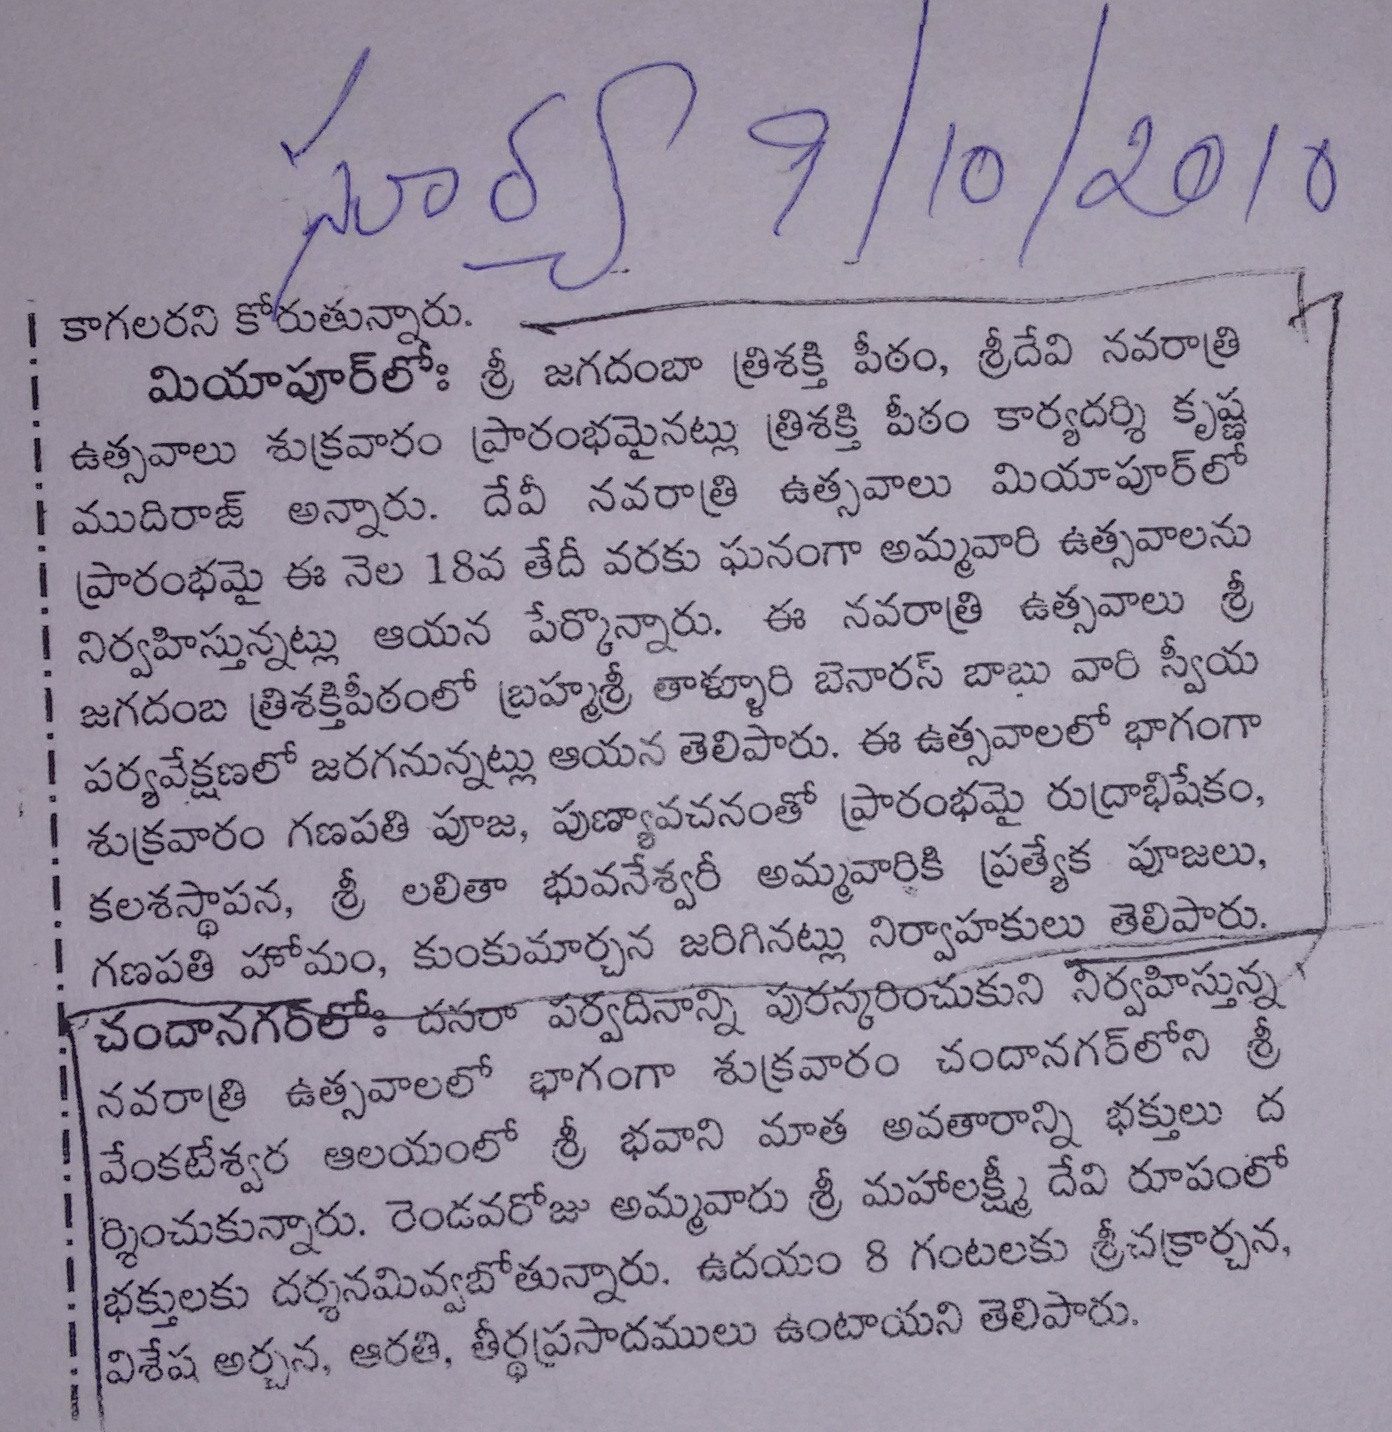 సూర్య 9/10/2010
కాగలరని కోరుతున్నారు.
మియాపూర్‌లో: శ్రీ జగదంబా త్రిశక్తి పీఠం, శ్రీదేవి నవరాత్రి
ఉత్సవాలు శుక్రవారం ప్రారంభమైనట్లు త్రిశక్తి పీఠం కార్యదర్శి కృష్ణ
ముదిరాజ్ అన్నారు. దేవీ నవరాత్రి ఉత్సవాలు మియాపూర్‌లో
ప్రారంభమై ఈ నెల 18వ తేదీ వరకు ఘనంగా అమ్మవారి ఉత్సవాలను
నిర్వహిస్తున్నట్లు ఆయన పేర్కొన్నారు. ఈ నవరాత్రి ఉత్సవాలు శ్రీ
జగదంబ త్రిశక్తిపీఠంలో బ్రహ్మశ్రీ తాళ్ళూరి బెనారస్ బాబు వారి స్వీయ
పర్యవేక్షణలో జరగనున్నట్లు ఆయన తెలిపారు. ఈ ఉత్సవాలలో భాగంగా
శుక్రవారం గణపతి పూజ, పుణ్యావచనంతో ప్రారంభమై రుద్రాభిషేకం,
కలశస్థాపన, శ్రీ లలితా భువనేశ్వరీ అమ్మవారికి ప్రత్యేక పూజలు,
గణపతి హోమం, కుంకుమార్చన జరిగినట్లు నిర్వాహకులు తెలిపారు.
చందానగర్‌లో: దసరా పర్వదినాన్ని పురస్కరించుకుని నిర్వహిస్తున్న
నవరాత్రి ఉత్సవాలలో భాగంగా శుక్రవారం చందానగర్‌లోని శ్రీ
వేంకటేశ్వర ఆలయంలో శ్రీ భవాని మాత అవతారాన్ని భక్తులు ద
ర్శించుకున్నారు. రెండవరోజు అమ్మవారు శ్రీ మహాలక్ష్మీ దేవి రూపంలో
భక్తులకు దర్శనమివ్వబోతున్నారు. ఉదయం 8 గంటలకు శ్రీచక్రార్చన,
విశేష అర్చన, ఆరతి, తీర్థప్రసాదములు ఉంటాయని తెలిపారు.